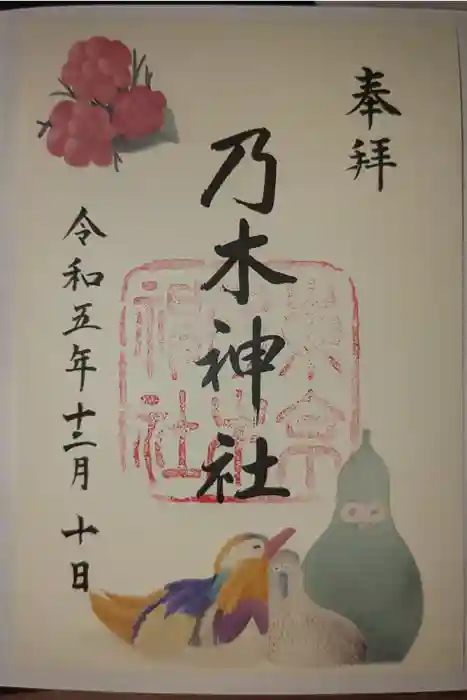 奉拝
乃木神社
令和五年十二月十日